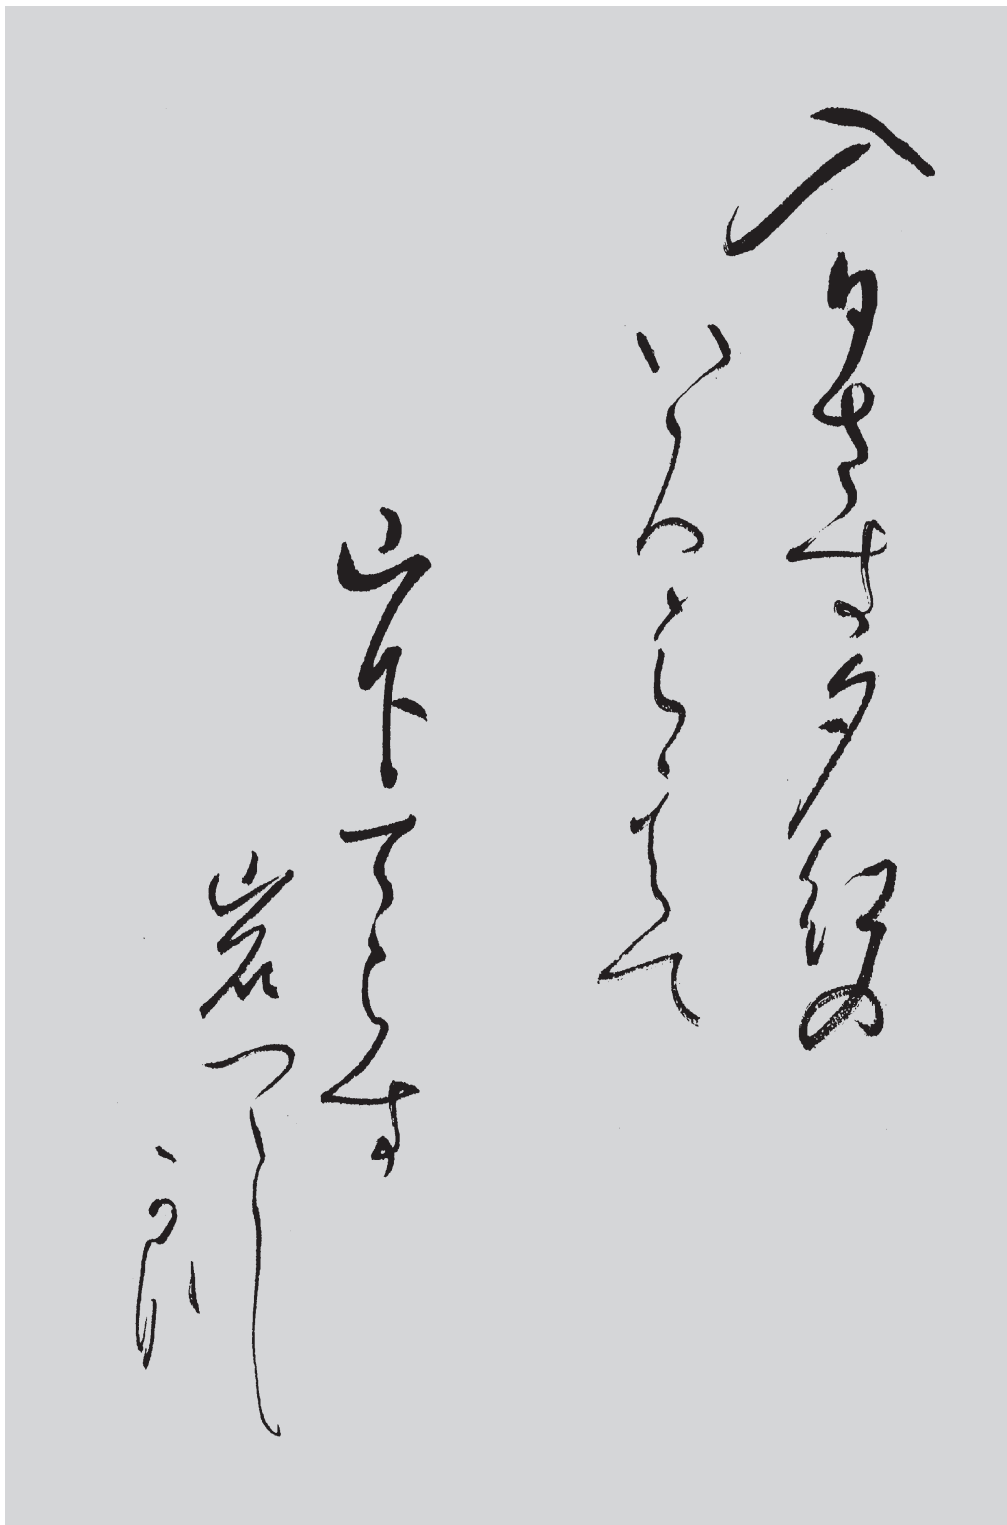 入日さす夕紅の
いろみえて
山下てらす
岩つゝし